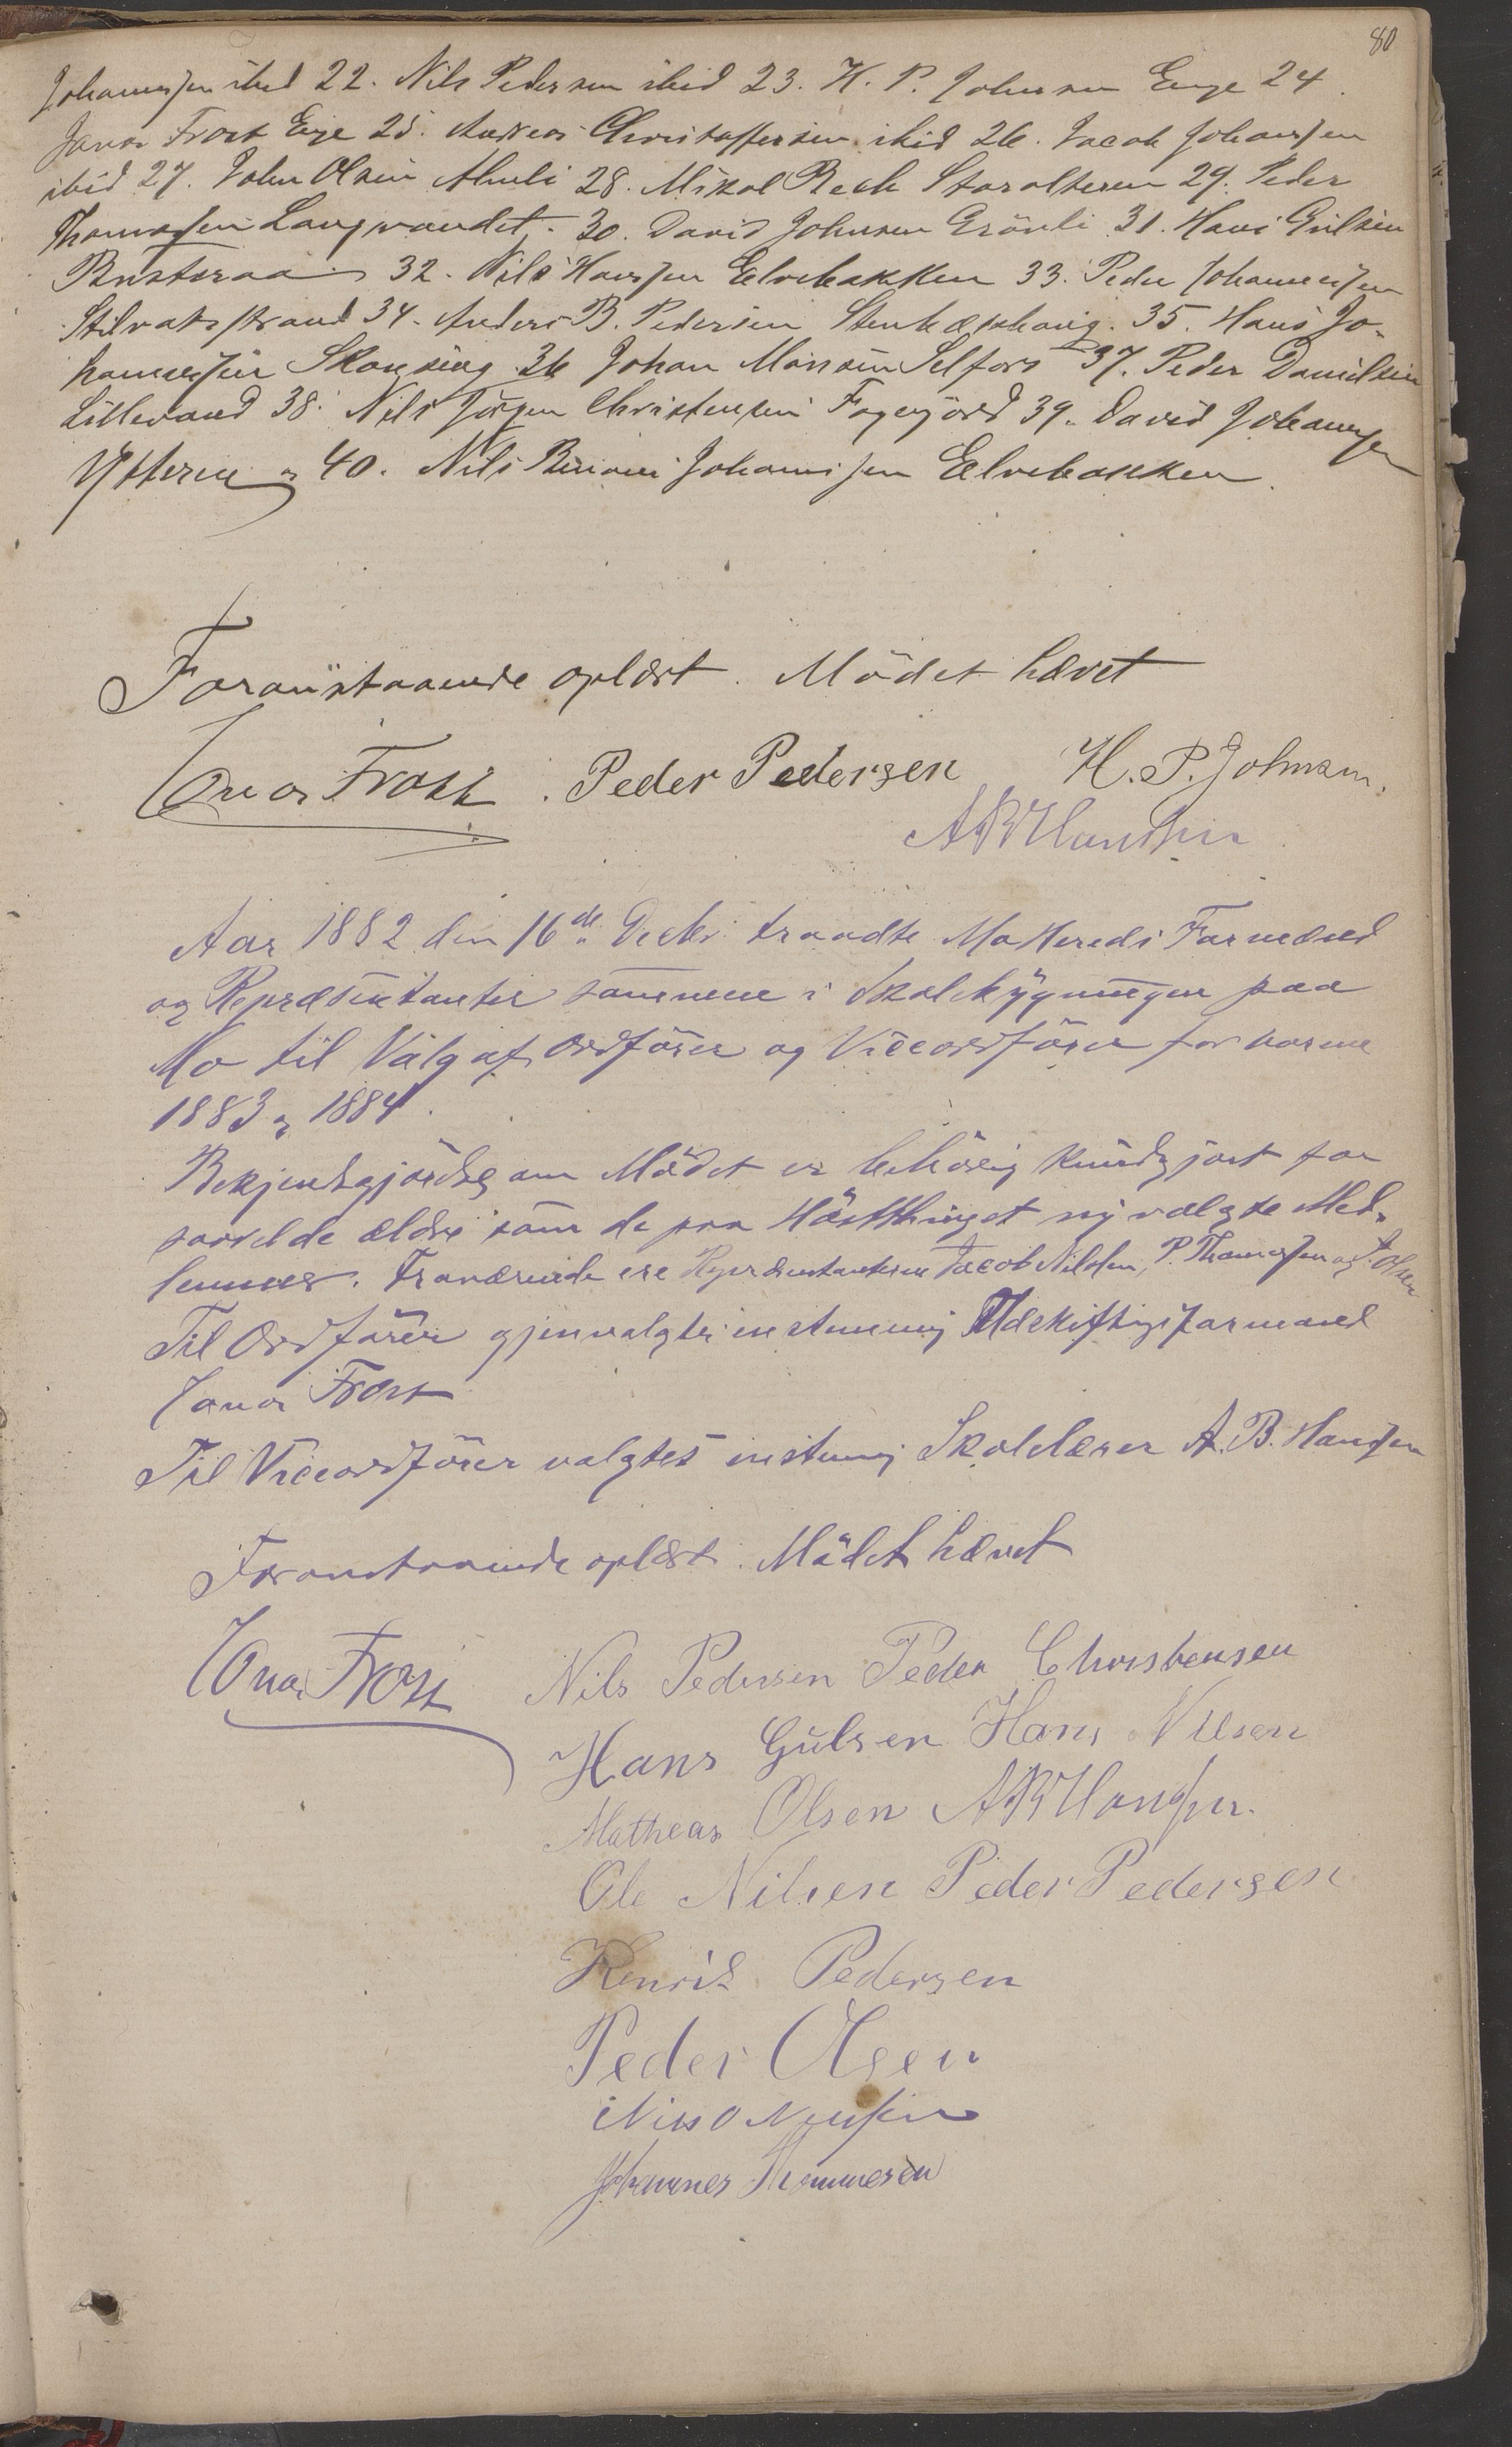 80
Johannesen ibid 22. Nils Pedersen ibid 23. H. P. Johnsen Enge 24.
Jonas Frost Enge 25. Andreas Christoffersen ibid 26. Jacob Johansen
ibid 27. John Olsen Almli 28. Mikal Bech Storalteren 29. Peder
Thomassen Langvandet. 30. David Johnsen Grönli 31. Hans Gulsen
Bustneraa 32. Nils Hanssen Elvebakken 33. Peder Johannessen
Stilvatsstrand 34. Anders B. Pedersen 35. Hans Jo-
hannessen Skonseng 36 Johan Monsen Selfors 37. Peder Danielsen
Lillevand 38. Nils Jörgen Christensen Fagerjord 39. David Johansen
Ytteren og 40. Nils Johanssen Elvebakken.
Foranstaaende oplæst. Mödet hævet
Jonas Frost. Peder Pedersen H. P. Johnsen.
A B Hanssen
Aar 1882 den 16de Decbr. traadte Mo Hereds Formænd
og Repræsentanter sammen i Skolebygningen paa
Mo til Valg af Ordförer og Viceordförer for aarene
1883 og 1884.
Bekjendtgjörelse om Mödet er behörig kundgjort for
saavel de ældre som de paa Höstthinget nyvalgte Med-
lemmer. Fraværende ere Repræsentanterne Jacob Nilsen, P. Thomassen og J. Olsen
Til Ordförer gjenvalgtes enstemmig Udskiftningsformand
Jonas Frost
Til Viceordförer valgtes enstemmig Skolelærer A. B. Hanssen
Foranstaaende oplæst. Mödet hævet
Jonas Frost Nils Pedersen Peder Christensen
Hans Gulsen Hans Nilsen
Matheas Olsen A B Hanssen.
Ole Nilsen Peder Pedersen
Henrik Pedersen
Peder Olsen
Nils O
Johannes Thommesen